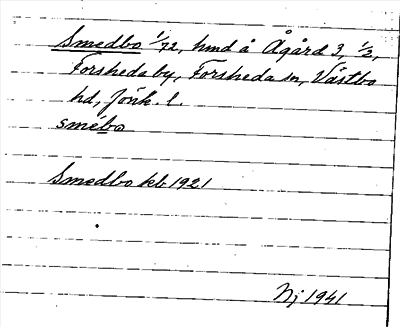 Smedbo 1/72, hmd å Ågård 3, 1/3,
Forsheda by, Forsheda sn, Västbo
hd, Jönk. l.
smébo
Smedbo kb 1921
Nj 1941